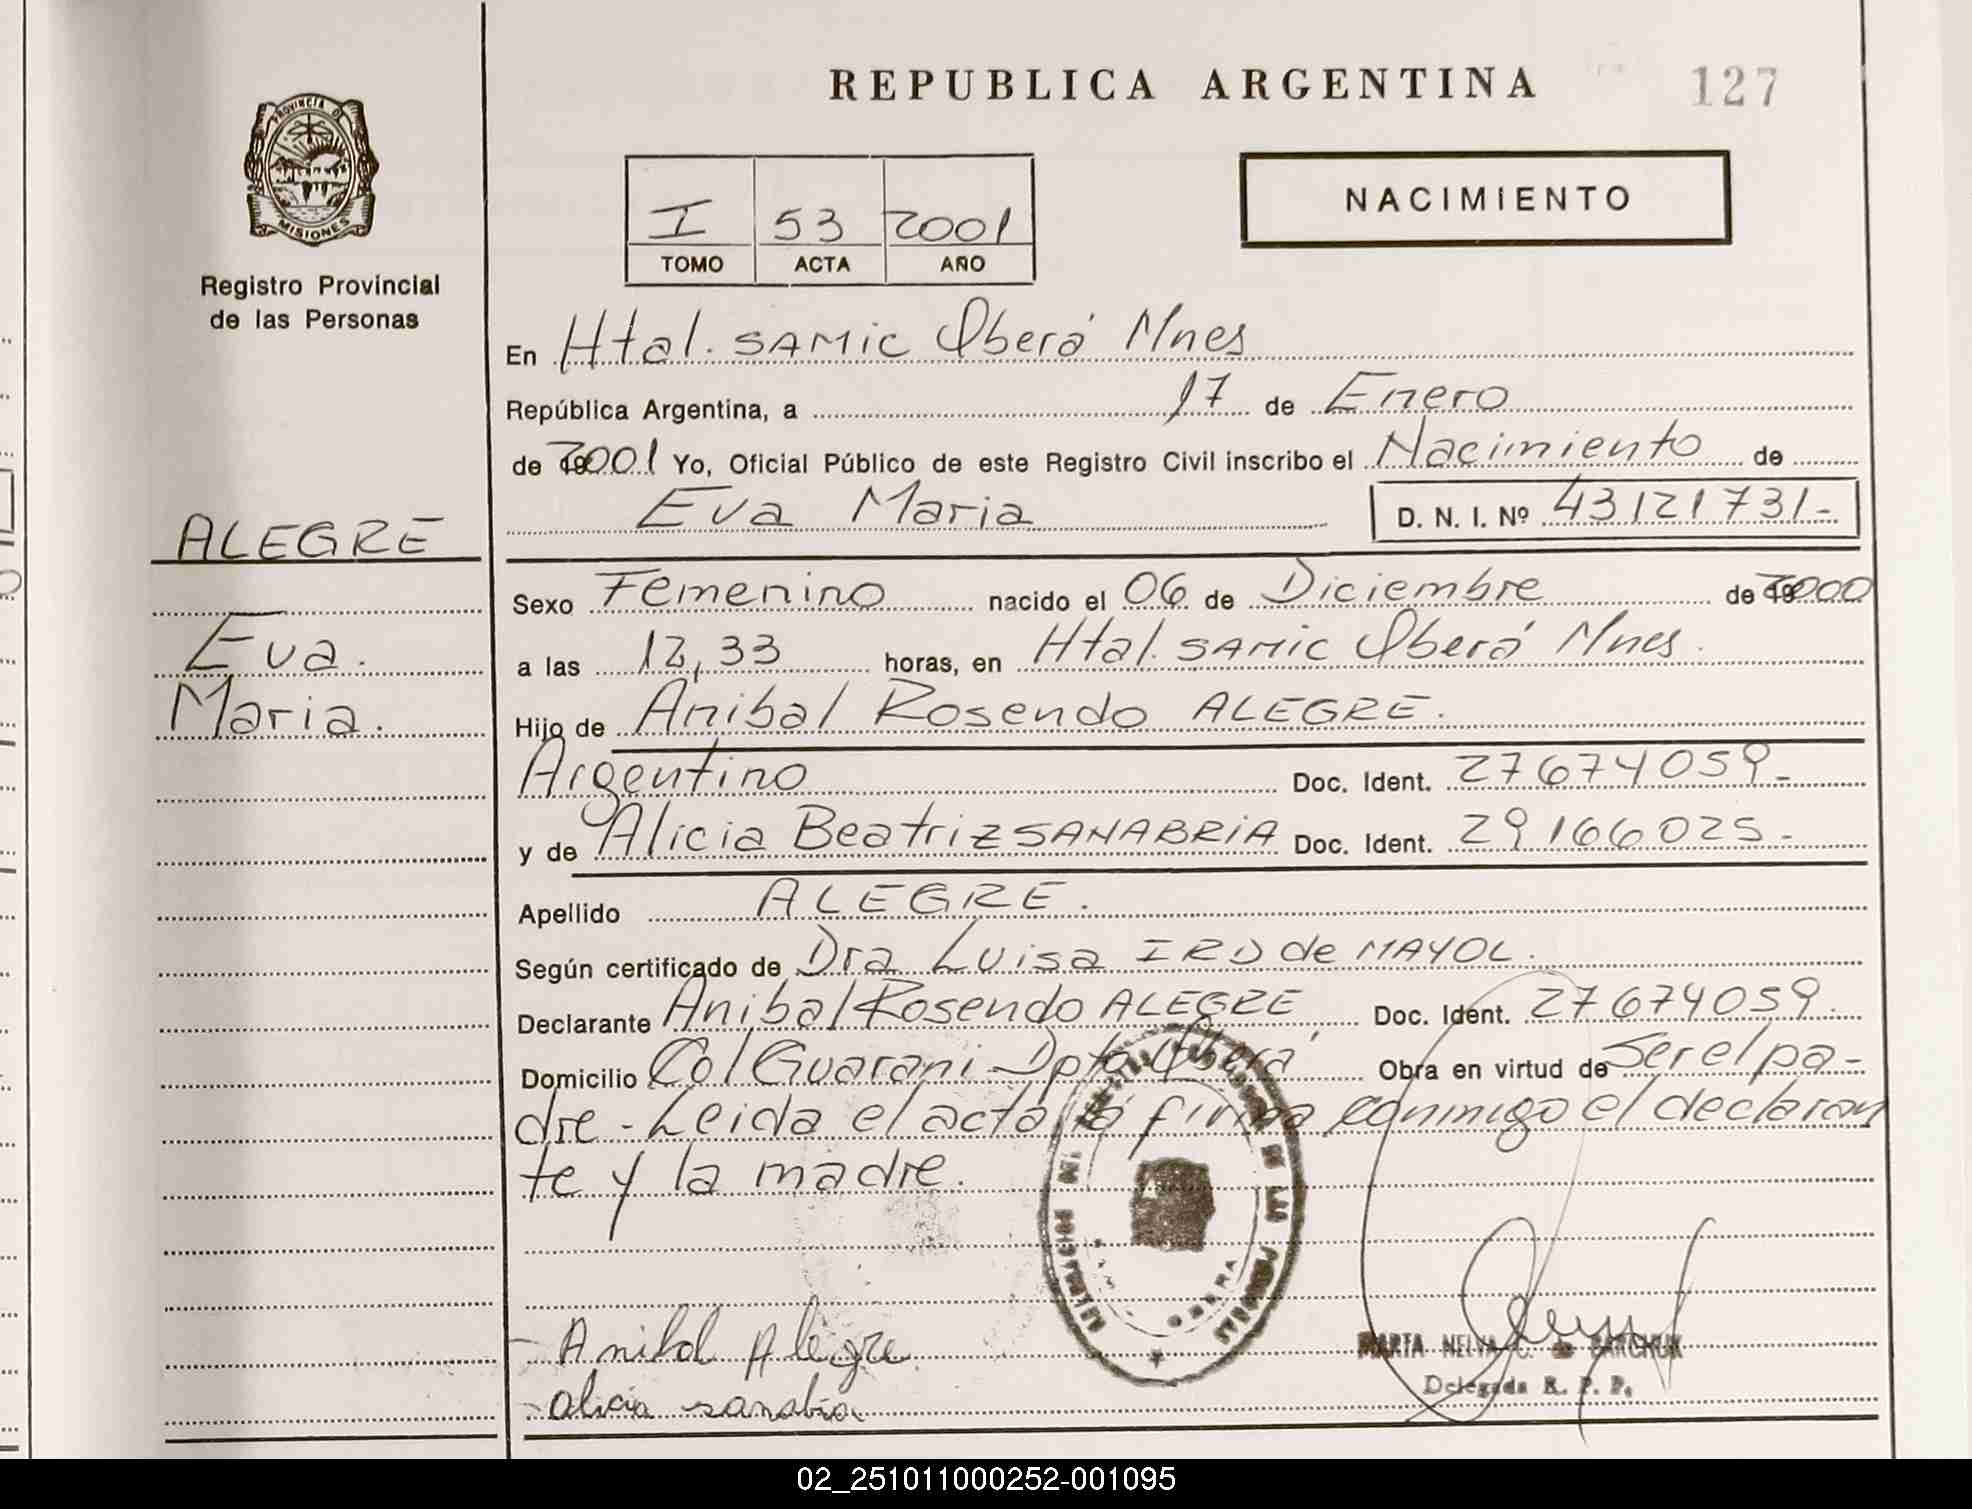 REPUBLICA ARGENTINA
127
PROVINCIA D
MISIONES
Registro Provincial
de las Personas
I 53 2001
TOMO ACTA AÑO
NACIMIENTO
En Htal. SAMIC Oberá Mnes
República Argentina, a 17 de Enero
de 2001 Yo, Oficial Público de este Registro Civil inscribo el Nacimiento de
Eva Maria D. N. I. Nº 43121731-
ALEGRE
Eva.
Maria.
Sexo Femenino nacido el 06 de Diciembre de 2000
a las 12,33 horas, en Htal. SAMIC Oberá Mnes.
Hijo de Anibal Rosendo ALEGRE.
Argentino Doc. Ident. 27674059-
y de Alicia Beatriz SANABRIA Doc. Ident. 29166025-
Apellido ALEGRE.
Según certificado de Dra Luisa IRD de MAYOL.
Declarante Anibal Rosendo ALEGRE Doc. Ident. 27674059.
Domicilio Col Guarani Dpto Oberá Obra en virtud de Ser el pa-
dre - Leida el acta la firma conmigo el declaran
te y la madre.
Anibal Alegre
alicia sanabria
MARTA NELVA C. de BARCHUK
Delegada R. P. P.
02_251011000252-001095